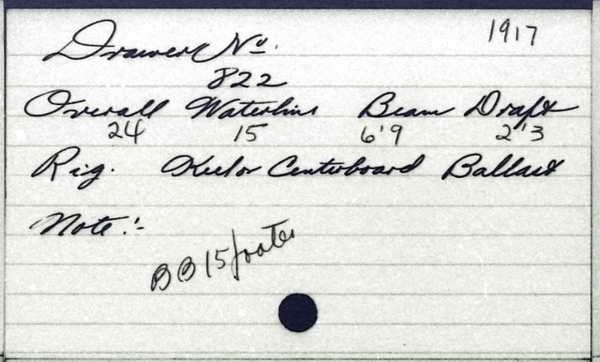 1917
Drawer No.
822
Overall Waterline Beam Draft
24 15 6'9 2'3
Rig. Keel or Centerboard Ballast
Note:-
BB 15 footer